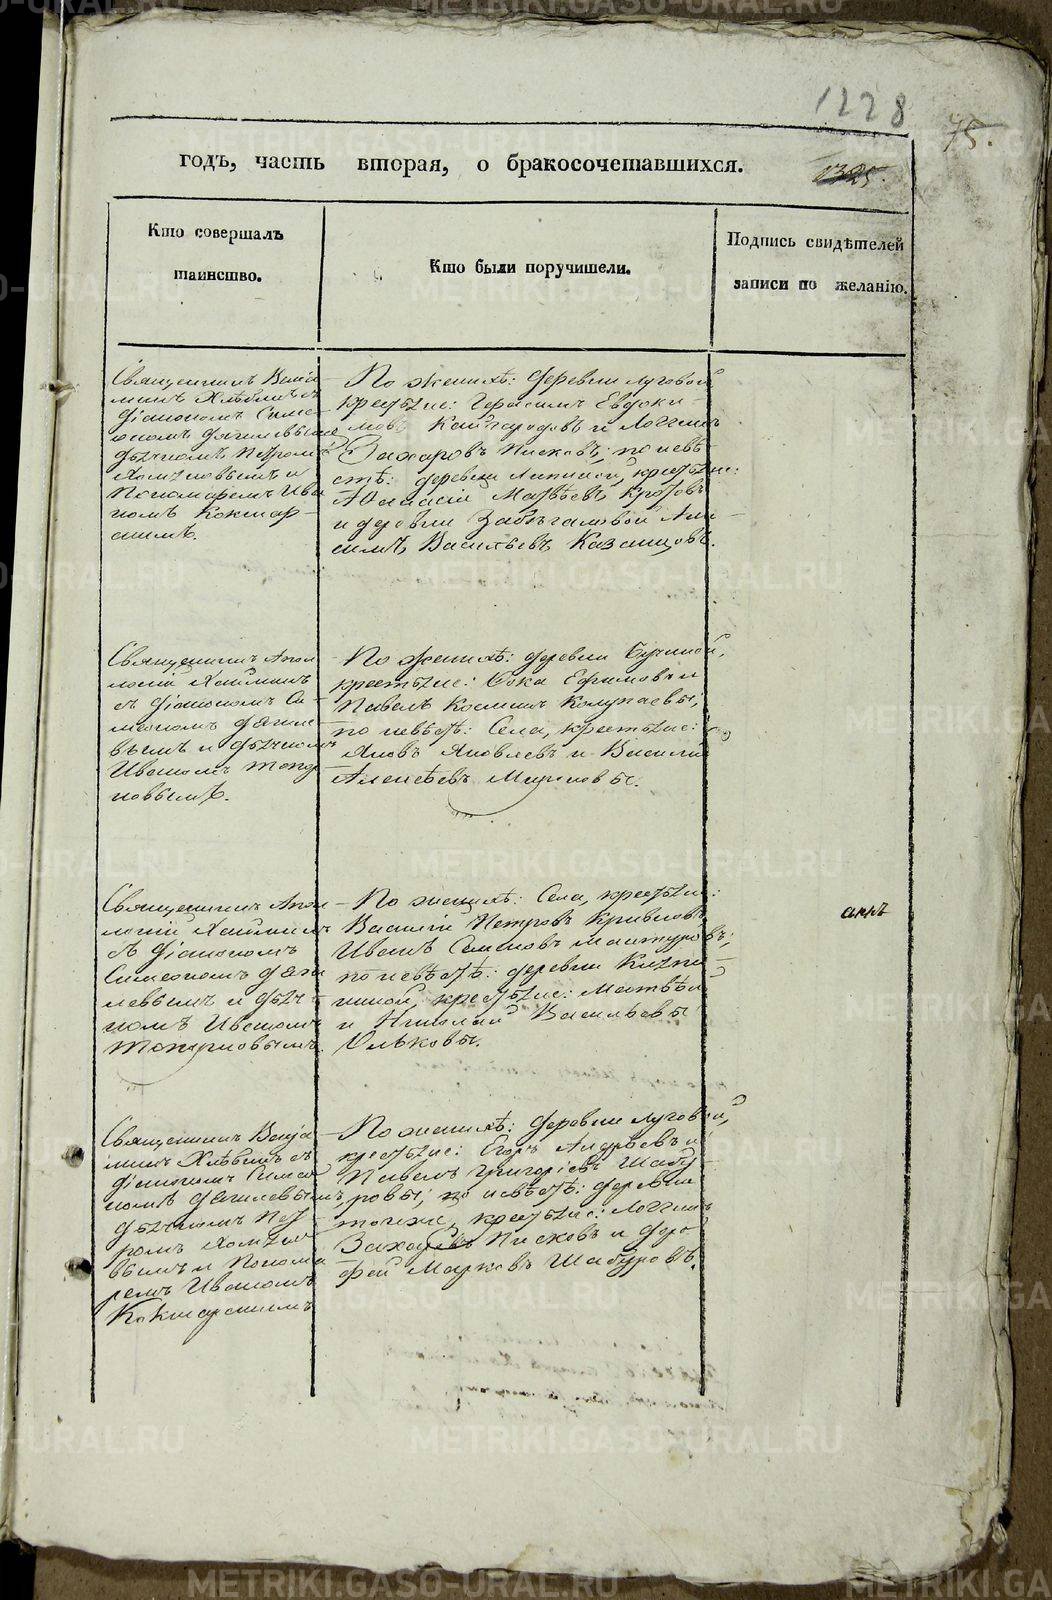 1228
75.
годъ, часть вторая, о бракосочетавшихся.
1325.
Кто совершалъ
таинство.
Кто были поручители.
Подпись свидѣтелей
записи по желанію.
Священникъ Венiа-
минъ Хлѣбинъ съ
Дiакономъ Симе-
ономъ Дягилевымъ
дьячкомъ Петромъ
и
Пономаремъ Ива
номъ Кокшар-
скимъ.
По женихѣ: деревни Луговой
крестьяне: Герасимъ Евдоки-
мовъ Кайгородовъ и Логгинъ
Захаровъ Писковъ; по невѣ
стѣ: деревни Липиной, крестьяне:
Аѳанасiй Матвѣевъ Кротовъ
и деревни Забѣгаловой Ани
симъ Васильевъ Казанцовъ.
Священникъ Апол
лонiй
съ Дiакономъ Си-
меономъ Дягиле
вымъ и дьячкомъ
Иваномъ Топор
новымъ.
По женихѣ: деревни
крестьяне: Ѳока Ефимовъ и
Павелъ Косминъ Колупаевы;
по невѣстѣ: Села, крестьяне:
Яковъ Яковлевъ и Василiй
Алексѣевъ Мироновы.
Священникъ Апол
лонiй
съ Дiакономъ
Симеономъ Дяги
левымъ и дьяч-
комъ Иваномъ
Топорновымъ.
По женихѣ: Села, крестьяне:
Василiй Петровъ
Иванъ Семеновъ Мантуровъ;
по невѣстѣ: деревни
крестьяне: Матвѣй
и Николай Васильевы
Ольковы.
акпѣ
Священникъ Венiа
минъ Хлѣбинъ съ
Дiакономъ Симео
номъ Дягилевымъ,
дьячкомъ Пет-
ромъ
вымъ и Понома
ремъ Иваномъ
Кокшарскимъ
По женихѣ: деревни Луговой,
крестьяне: Егоръ Андреевъ и
Павелъ Григорiевъ Шабу
ровы; по невѣстѣ: деревни
тоеже, крестьяне: Логгинъ
Захаровъ Писковъ и Дро
фей Марковъ Шабуровъ.
METRIKI.GASO-URAL.RU